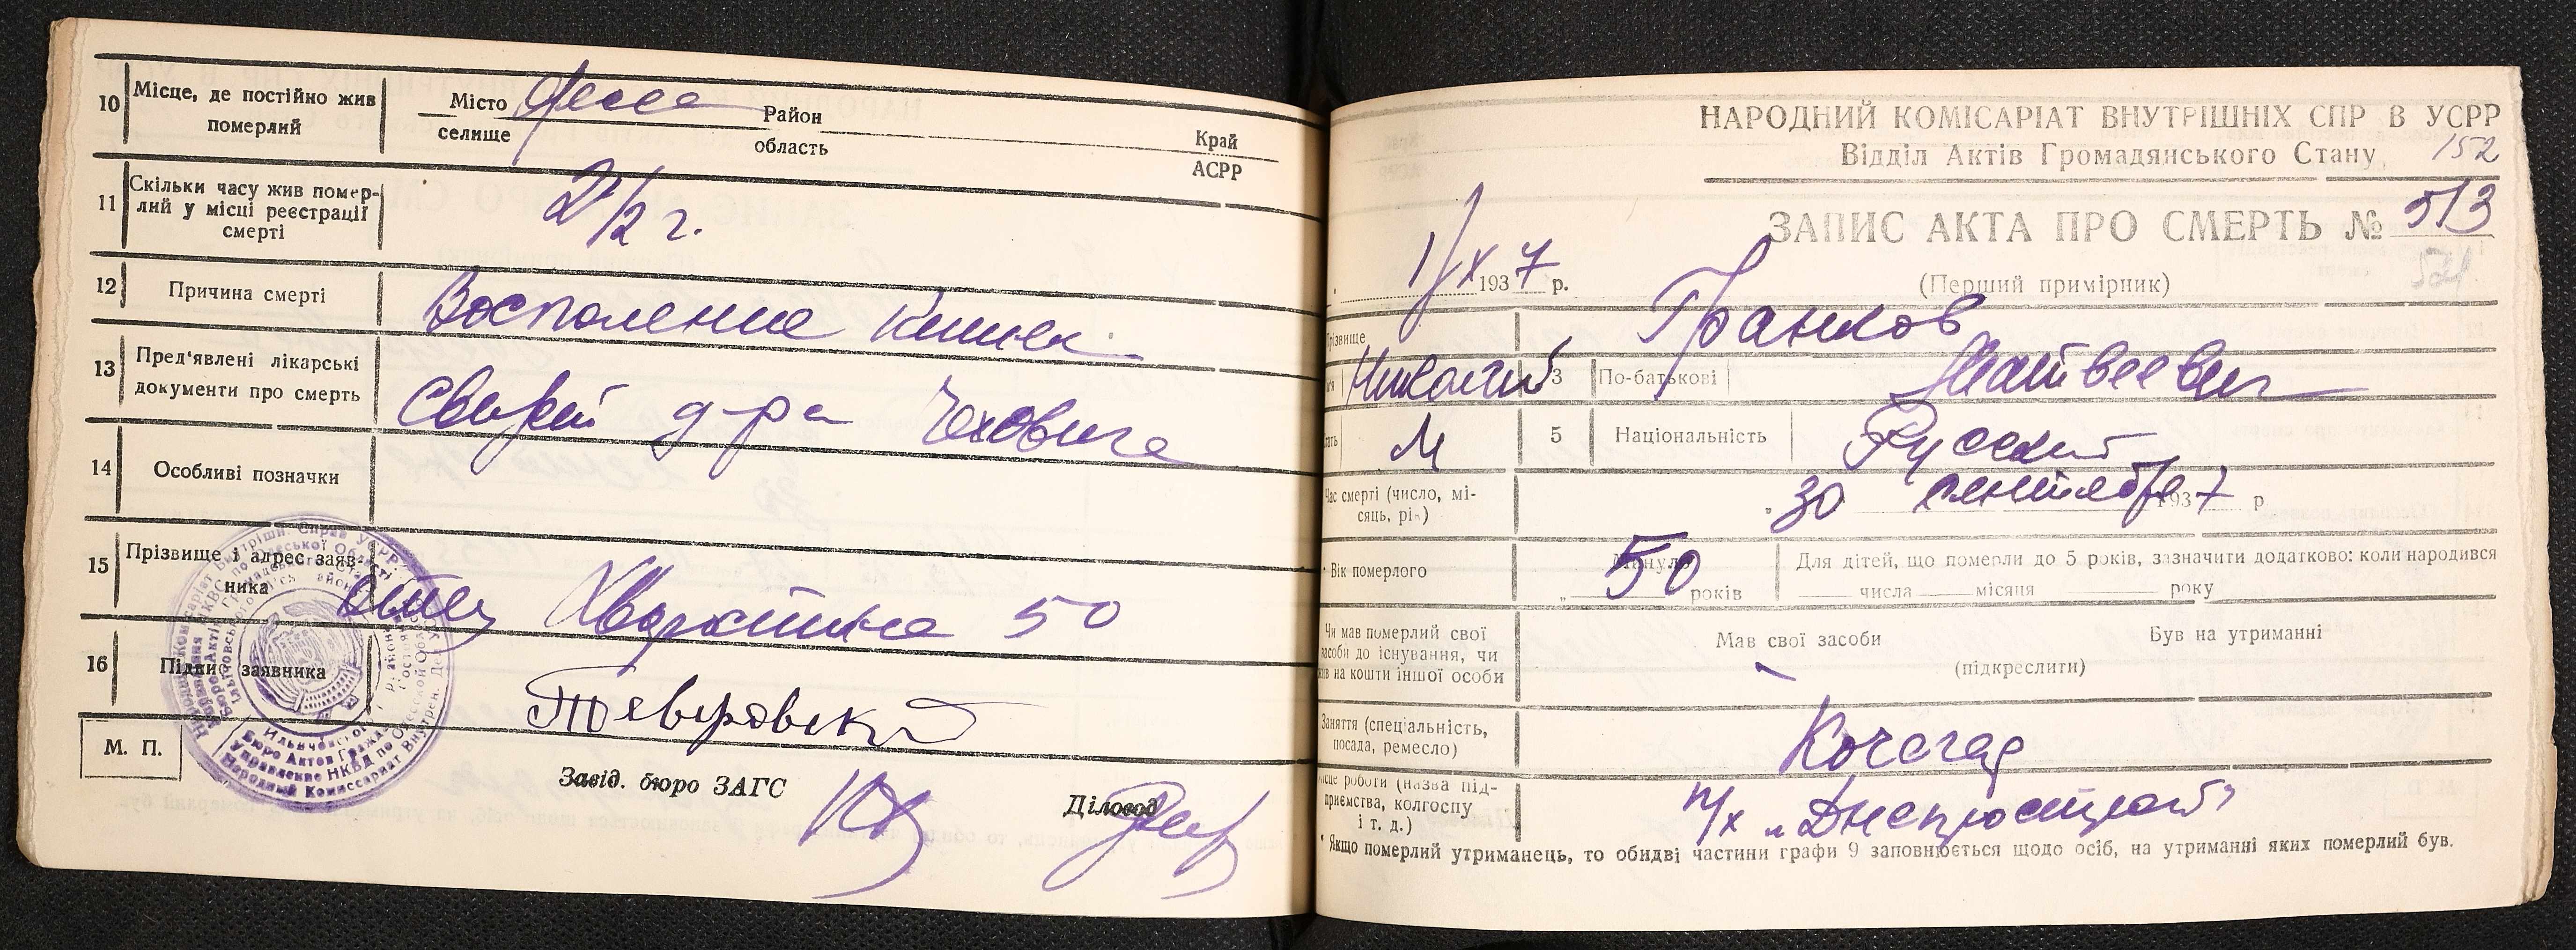 10 Місце, де постійно жив померлий
Місто Одесса Район Край
селище область АСРР
11 Скільки часу жив помер-
лий у місці реєстрації
смерті
2 1/2 г.
12 Причина смерті
Восполение кишек
13 Пред'явлені лікарські
документи про смерть
д-ра
14 Особливі позначки
15 Прізвище і адрес заяв-
ника
Хворостина 50
16 Підпис заявника
М. П.
Завід. бюро ЗАГС
Діловод
НАРОДНИЙ КОМІСАРІАТ ВНУТРІШНІХ СПР В УСРР
Відділ Актів Громадянського Стану 152
ЗАПИС АКТА ПРО СМЕРТЬ № 513
521
1/X 1937 р.
(Перший примірник)
Прізвище
Николай 3 По-батькові Матвеевич
М 5 Національність Русский
Час смерті (число, мі-
сяць, рік)
30 сентября 1937 р
Вік померлого
Минуло 50 років
Для дітей, що померли до 5 років, зазначити додатково: коли народився
числа місяця року
Чи мав померлий свої
засоби до існування, чи
жив на кошти іншої особи
Мав свої засоби Був на утриманні
(підкреслити)
Заняття (спеціальність,
посада, ремесло)
Кочегар
Місце роботи (назва під-
приємства, колгоспу
і т. д.)
п/х „Днепрострой"
* Якщо померлий утриманець, то обидві частини графи 9 заповнюється щодо осіб, на утриманні яких померлий був.